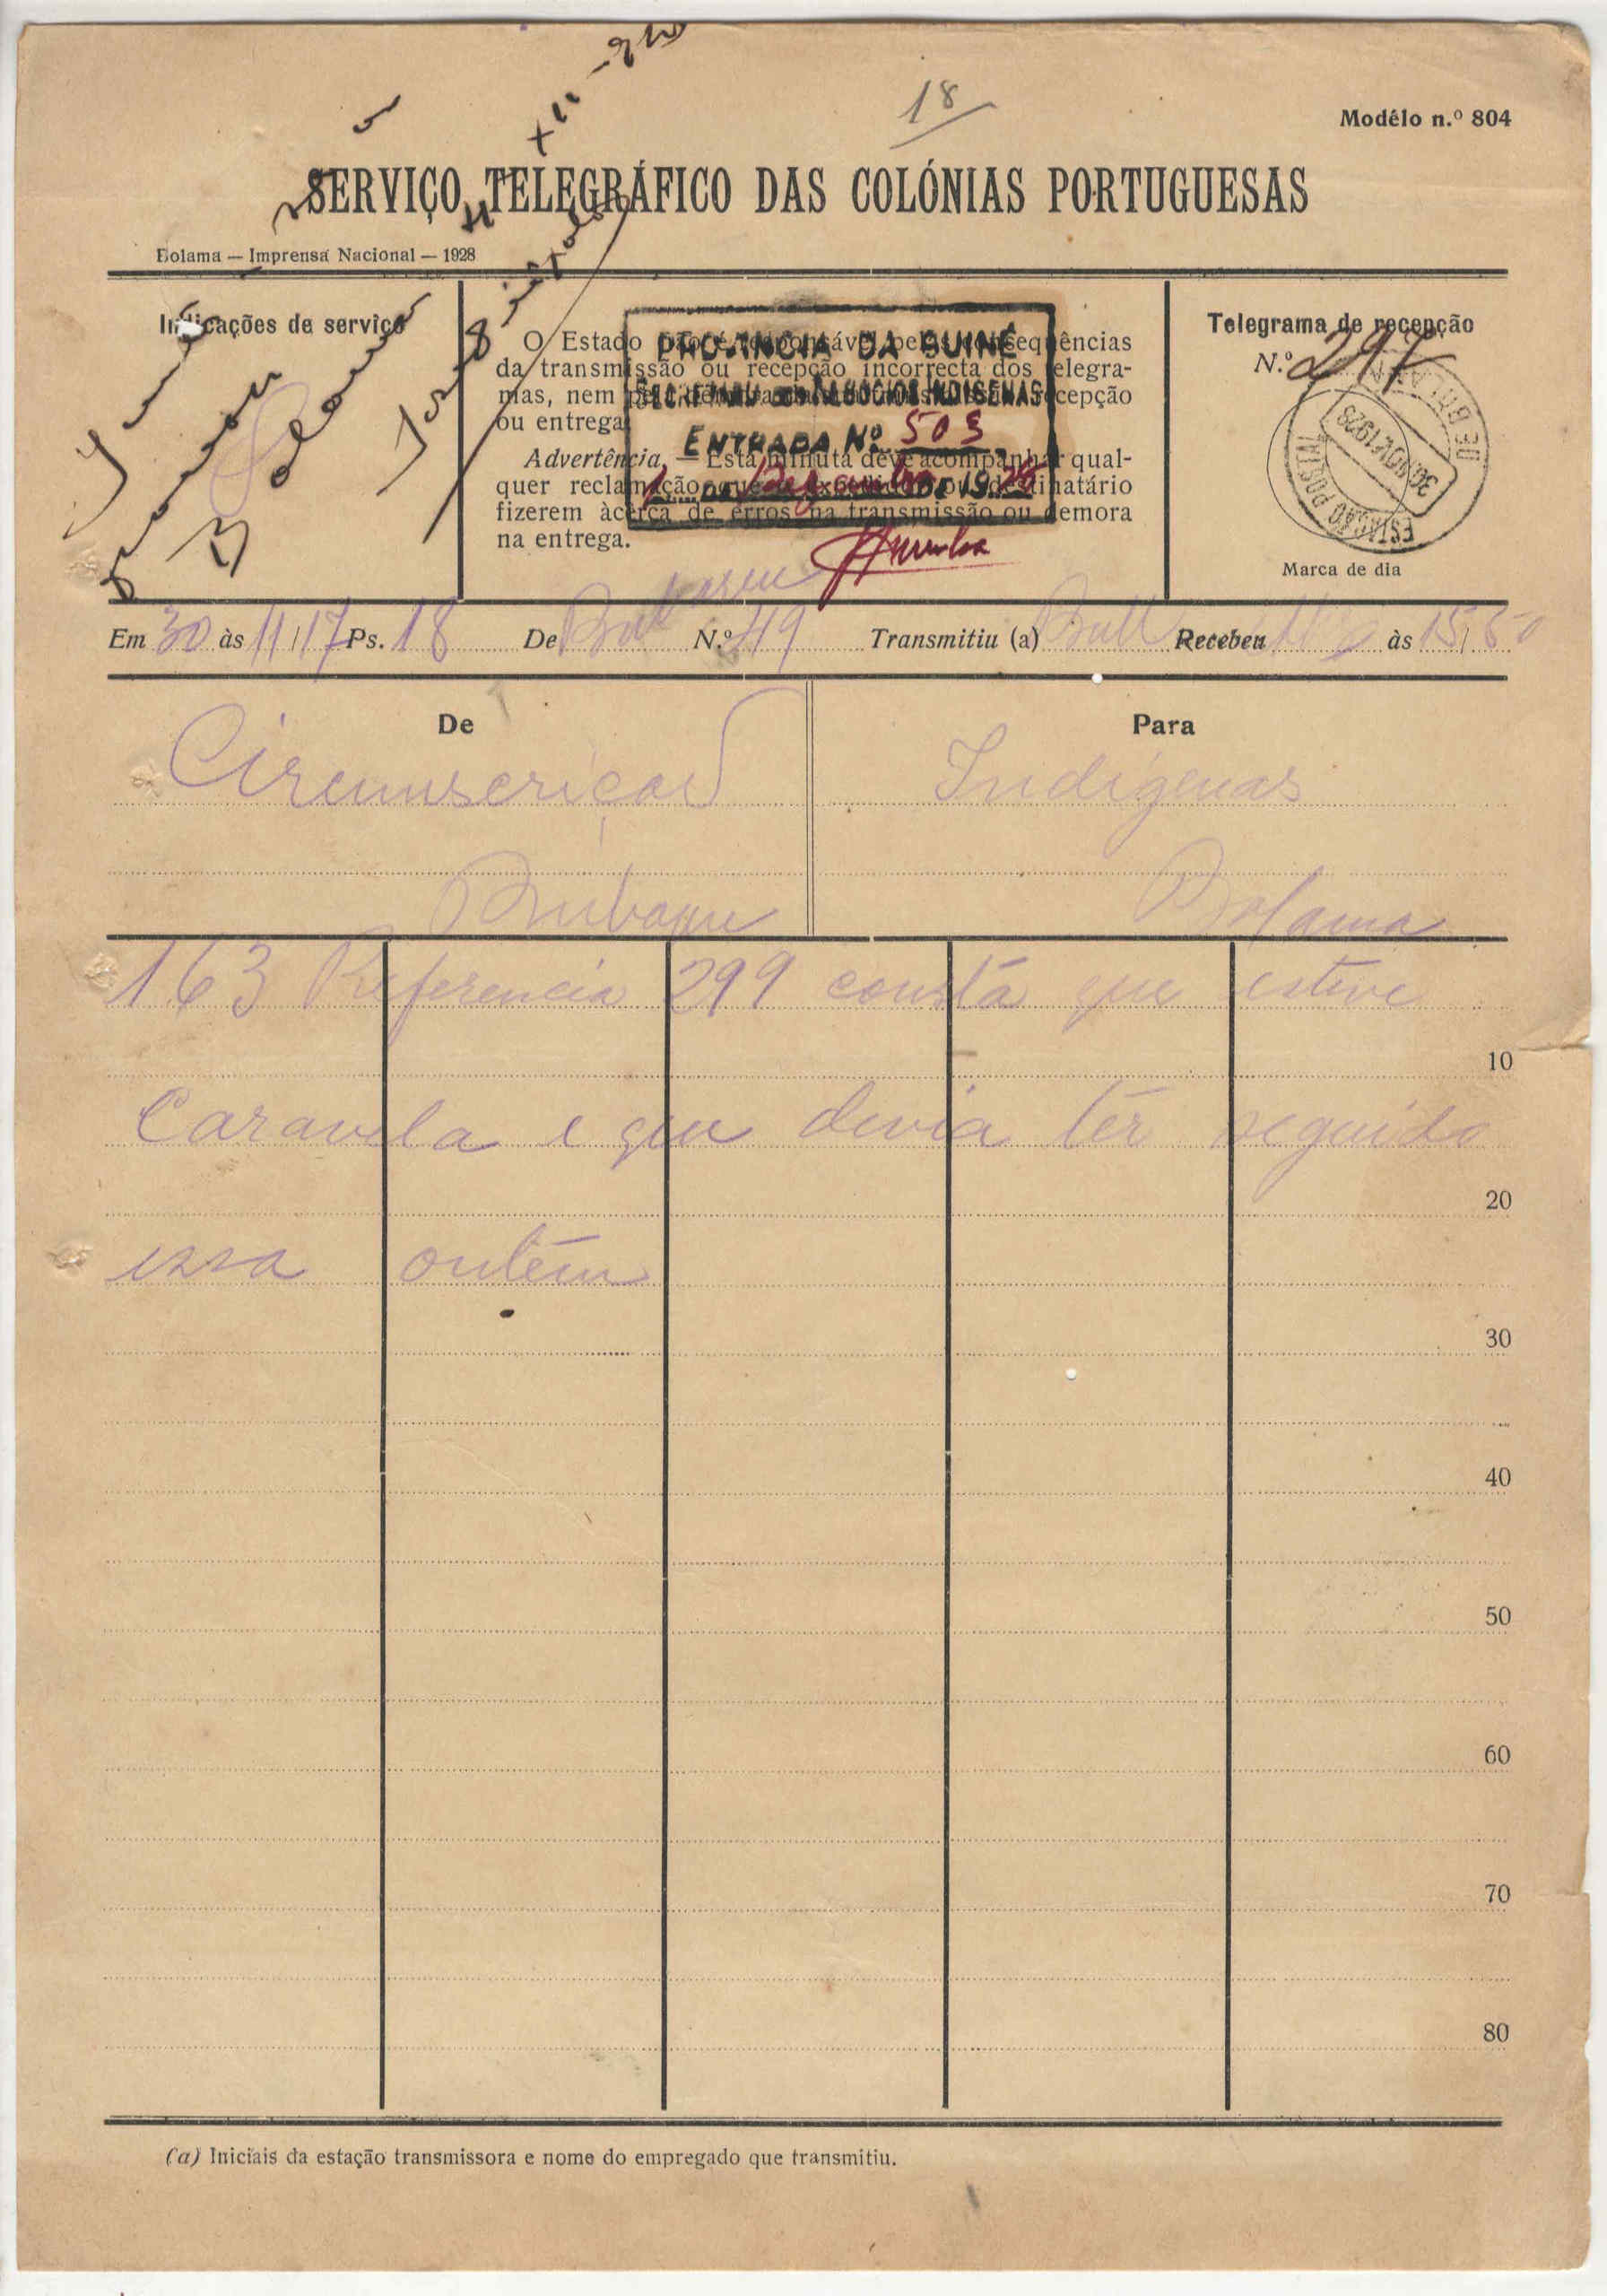 18
Modêlo n.º 804
SERVIÇO TELEGRÁFICO DAS COLÓNIAS PORTUGUESAS
Bolama — Imprensa Nacional — 1928
Indicações de serviço
O Estado não é responsável pelas consequências
da transmissão ou recepção incorrecta dos telegra-
mas, nem recepção
ou entrega.
Advertência. — Esta minuta deve acompanhar qual-
quer reclamação que o expedidor ou destinatário
fizerem àcêrca de erros na transmissão ou demora
na entrega.
PROVINCIA DA GUINÉ
SECRETARIA DOS NEGOCIOS INDIGENAS
ENTRADA Nº 503
DE Dezembro DE 1928
Telegrama de recepção
N.º 297
ESTAÇÃO POSTAL DE BOLAMA
30.NOV.1928
Marca de dia
Em 30 às 11/17 Ps. 18 De Bubaque N.º 49 Transmitiu (a) Recebeu às 15,50
De
Circunscrição
Bubaque
Para
Indígenas
Bolama
163 Referencia 299 constá que esteve
10
Caravela e que devia têr seguido
20
essa ontém
30
40
50
60
70
80
(a) Iniciais da estação transmissora e nome do empregado que transmitiu.